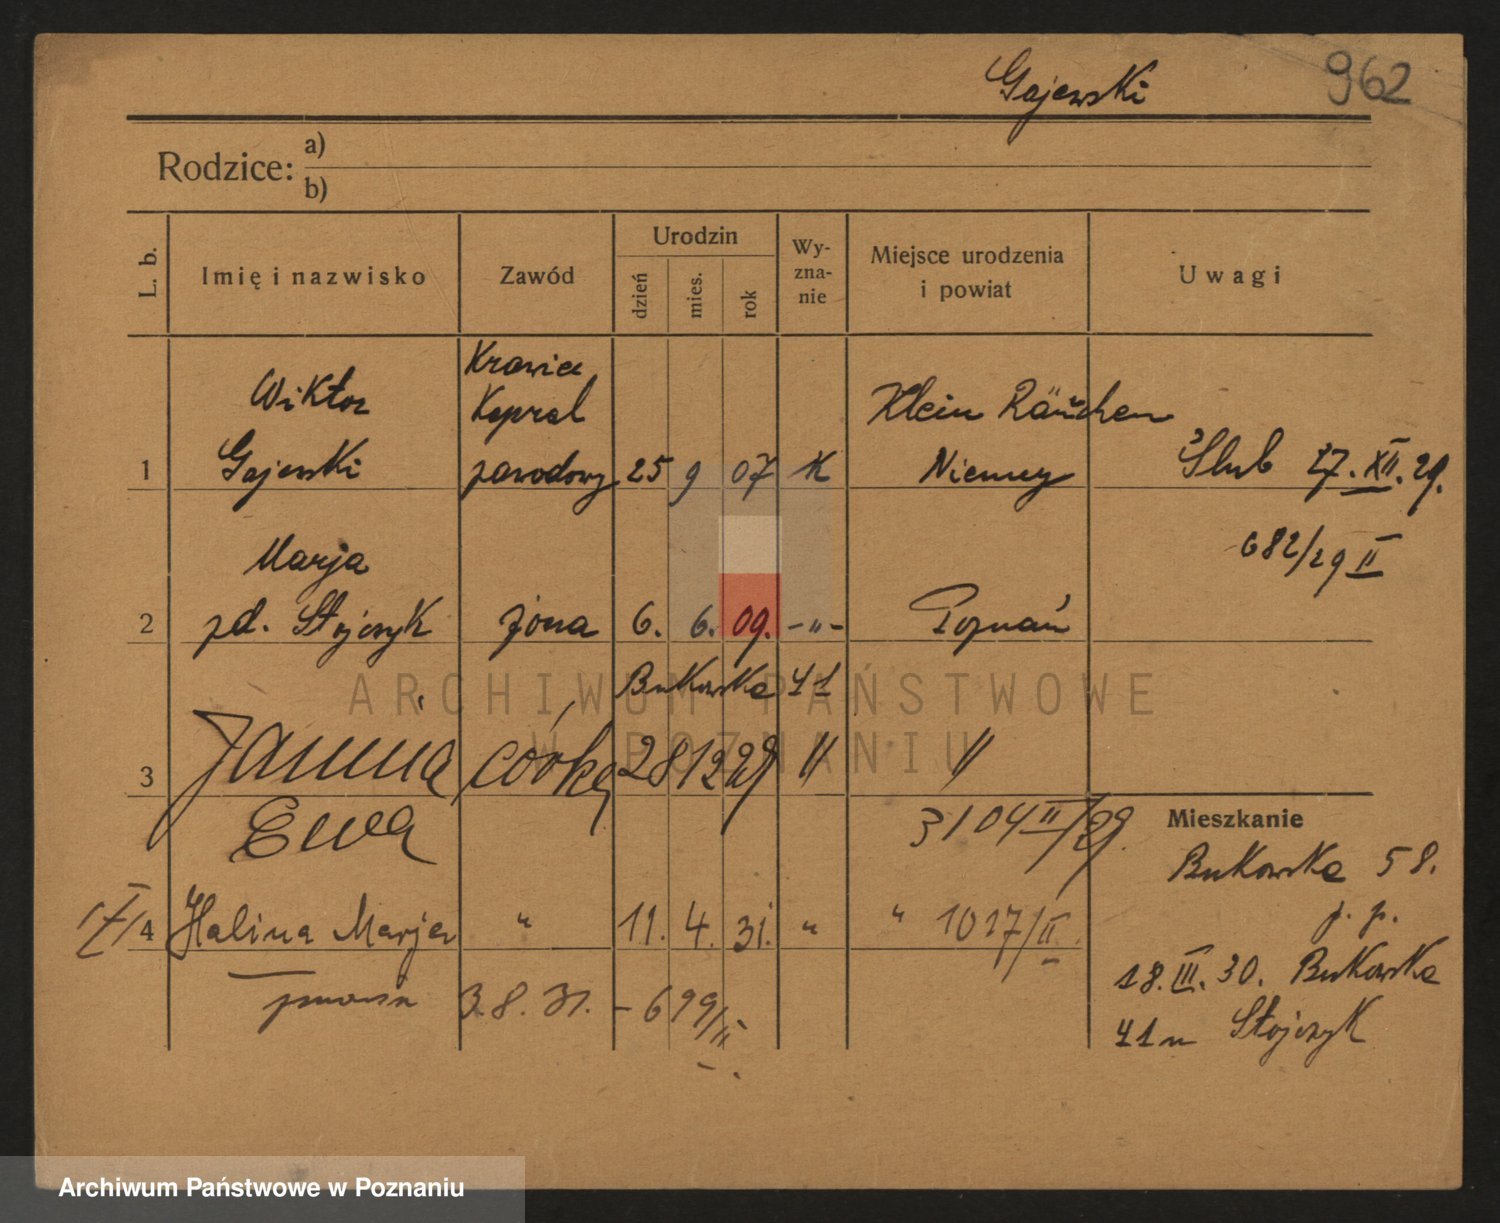 Gajewski 962
Rodzice: a)
b)
L. b. Imię i nazwisko Zawód Urodzin dzień mies. rok Wy-zna-nie Miejsce urodzenia i powiat Uwagi
Krawiec
Wiktor Kapral Klein Räuschen
1 Gajewski zawodowy 25 9 07 K Niemcy Ślub 27.XII.29.
682/29 II
Marja
2 zd. Stojczyk żona 6. 6. 09. -"- Poznań
Bukowska 41
3 Janina córka 28 12 29 " "
Ewa 3104 II/29. Mieszkanie
Bukowska 58.
p. p.
4 Halina Marja " 11. 4. 31. " " 1017/II
18.III.30. Bukowska
zmarła 3.8.31. - 699/II
41 u Stojczyk
ARCHIWUM PAŃSTWOWE
W POZNANIU
Archiwum Państwowe w Poznaniu